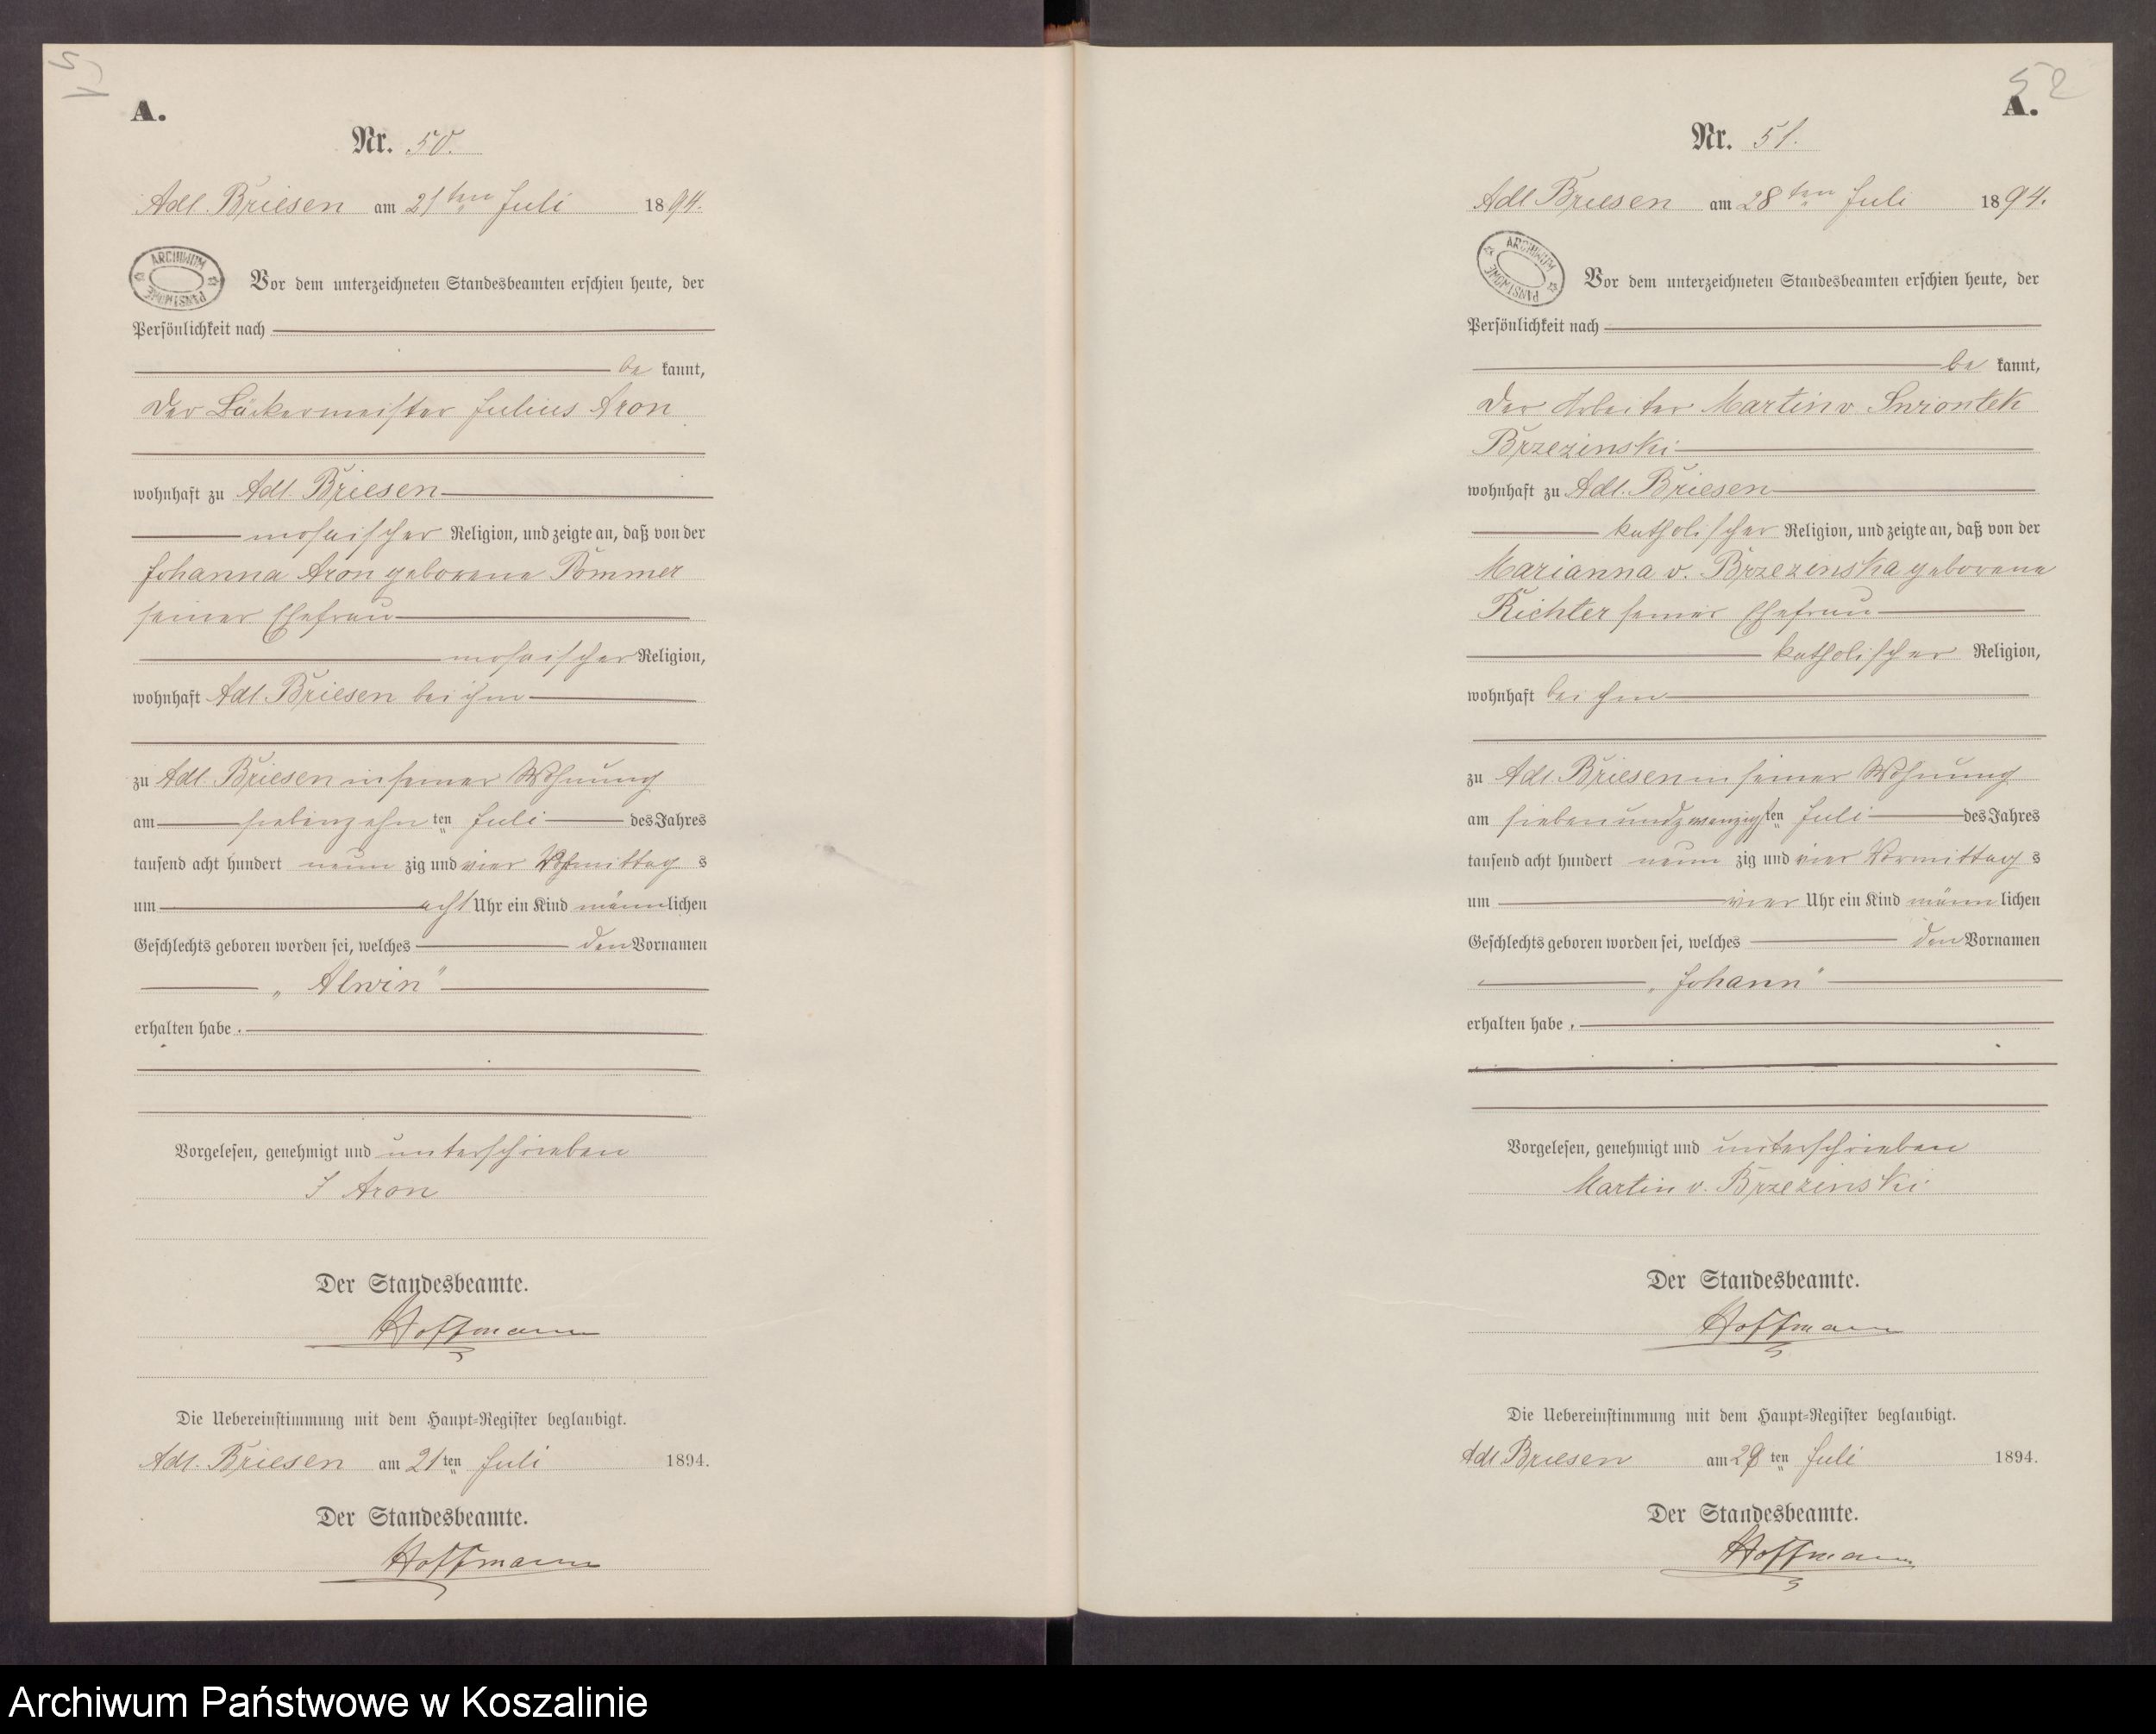 A.
Nr. 50.
Adl. Briesen am 21ten Juli 1894.
ARCHIWUM PAŃSTWOWE
Vor dem unterzeichneten Standesbeamten erschien heute, der
Persönlichkeit nach
be kannt,
der Bäckermeister Julius Aron
wohnhaft zu Adl. Briesen
mosaischer Religion, und zeigte an, daß von der
Johanna Aron geborene Pommer
seiner Ehefrau
mosaischer Religion,
wohnhaft Adl. Briesen bei ihm
zu Adl. Briesen in seiner Wohnung
am siebenzehn ten Juli des Jahres
tausend acht hundert neun zig und vier mittag s
um acht Uhr ein Kind männlichen
Geschlechts geboren worden sei, welches den Vornamen
„Alwin"
erhalten habe.
Vorgelesen, genehmigt und unterschrieben
J Aron
Der Standesbeamte.
Hoffmann
Die Uebereinstimmung mit dem Haupt-Register beglaubigt.
Adl. Briesen am 21ten Juli 1894.
Der Standesbeamte.
Hoffmann
52
A.
Nr. 51.
Adl Briesen am 28ten Juli 1894.
ARCHIWUM PAŃSTWOWE
Vor dem unterzeichneten Standesbeamten erschien heute, der
Persönlichkeit nach
be kannt,
der Arbeiter Martin v.
Brzezinski
wohnhaft zu Adl. Briesen
katholischer Religion, und zeigte an, daß von der
Marianna v. Brzezinska geborene
Richter seiner Ehefrau
katholischer Religion,
wohnhaft bei ihm
zu Adl. Briesen in seiner Wohnung
am siebenundzwanzigsten Juli des Jahres
tausend acht hundert neun zig und vier Vormittag s
um vier Uhr ein Kind männ lichen
Geschlechts geboren worden sei, welches den Vornamen
„Johann"
erhalten habe.
Vorgelesen, genehmigt und unterschrieben
Martin v. Brzezinski
Der Standesbeamte.
Hoffmann
Die Uebereinstimmung mit dem Haupt-Register beglaubigt.
Adl Briesen am ten Juli 1894.
Der Standesbeamte.
Hoffmann
Archiwum Państwowe w Koszalinie